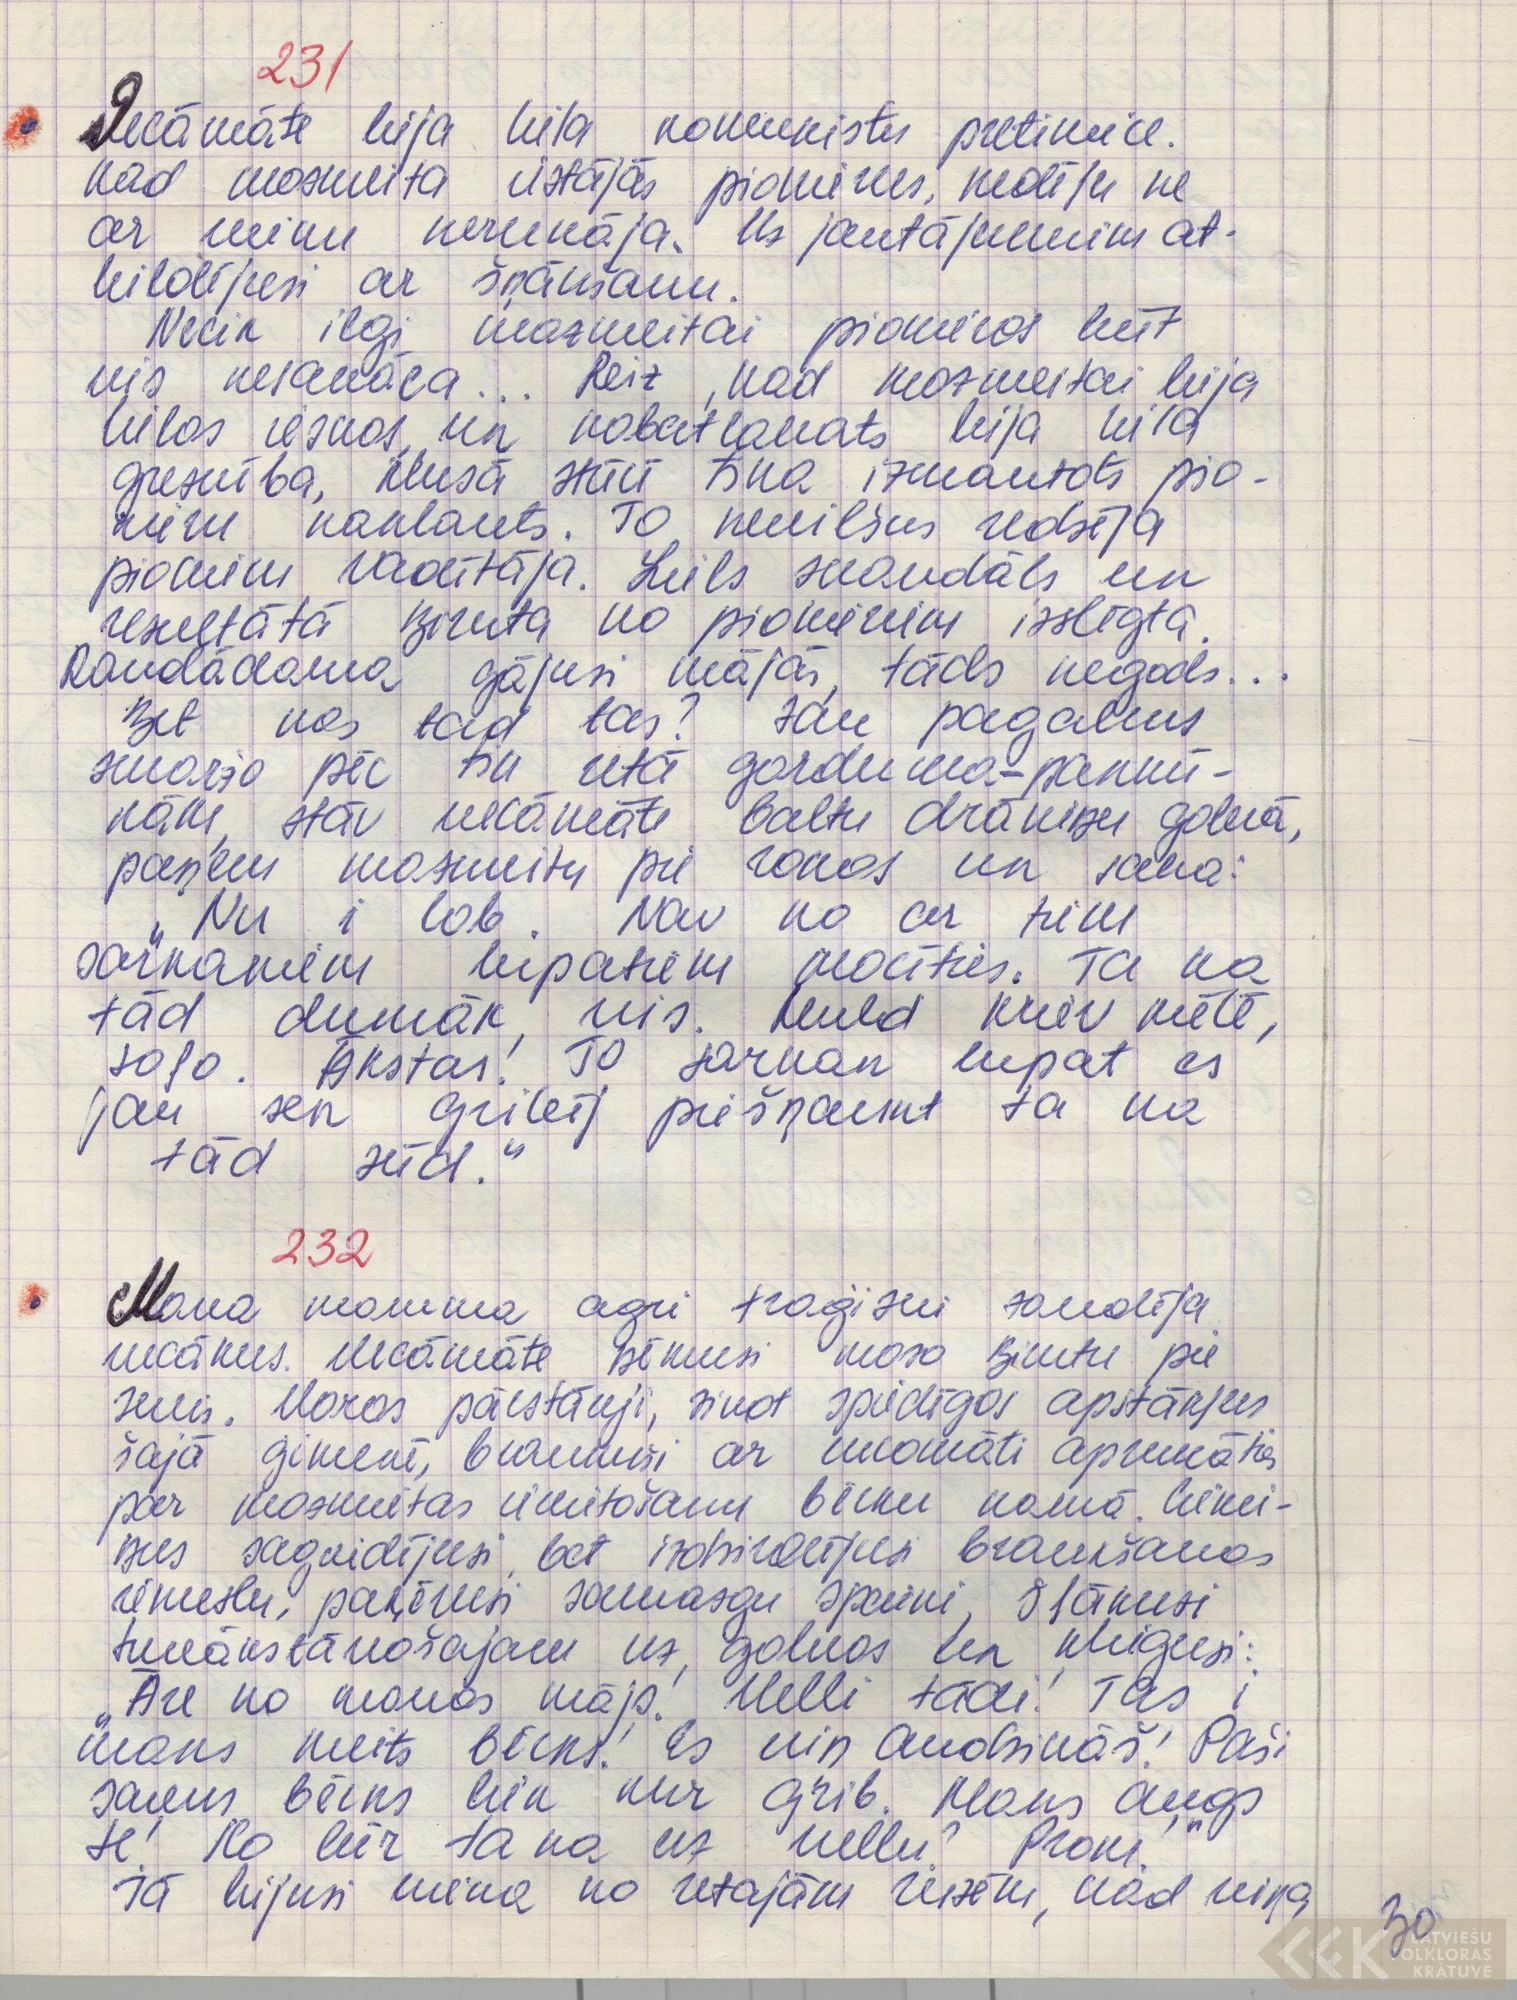 231
Vecāmāte bija liela komunistu pretiniece.
Kad mazmeita iestājās pionieros, nedēļu ne
ar vienu nerunāja. Uz jautājumiem at-
bildējusi ar šņākšanu.
Necik ilgi mazmeitai pionieros būt
vis nesanāca... Reiz, kad mazmeitai bija
lielas iesnas, un kabatlakats bija liela
greznība, klusā stūrī tika izmantots pio-
nieru kaklauts. To nevilšus redzēja
pionieru vadītāja. Liels skandāls un
rezultātā Biruta no pionieriem izslēgta.
Raudādama gājusi mājās, tāds negods...
Bet kas tad tas? Jau pagalms
smaržo pēc tik retā garduma-pankū-
kām, stāv vecāmāte baltu drāniņu galvā,
paņem mazmeitu pie rokas un saka:
„Nu i lab. Nav ko ar tiem
sarkaniem lupatiem mocīties. Ta ka
tād dumāk, vis. Muld kriev mēlē,
soļo. Ākstas! To sarkan lupat es
jau sen gribēj piešņaukt ta ka
tād sūd."
232
Mana mamma agri traģiski zaudēja
vecākus. Vecāmāte ņēmusi mazo Birutu pie
sevis. Varas pārstāvji, zinot spiedīgos apstākļus
šajā ģimenē, braukuši ar vecomāti aprunāties
par mazmeitas ievietošanu bērnu namā. Viesi-
ņus sagaidījusi, bet izdzirdējusi braukšanas
iemeslu, paķērusi samazgu spaini, šļākusi
tuvākstāvošajam uz galvas un kliegusi:
„Āre no manas mājs! Velli tādi! Tas i
mans meits bērns! Es viņ audzināš! Paši
savus bērns liek kur grib. Mans augs
te! Ko blūr ta ka uz vellu? Prom!"
Tā bijusi viena no retajām reizēm, kad viņa
30
LATVIEŠU
FOLKLORAS
KRĀTUVE